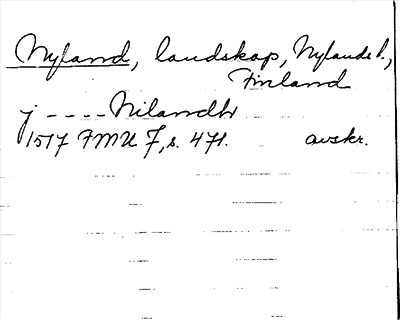 Nyland, landskap, Nylands l.,
Finland
j ---- Nilandh
1517 FMU 7, s. 471. avskr.